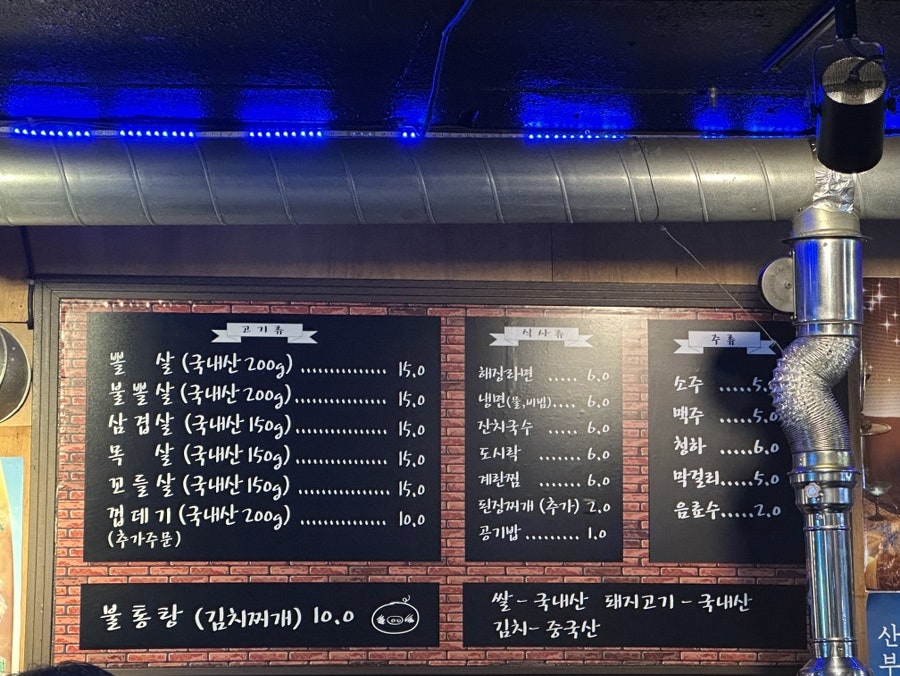 고기류
뽈 살 (국내산 200g) ............... 15.0
불뽈살 (국내산 200g) ............... 15.0
삼겹살 (국내산 150g) ............... 15.0
목 살 (국내산 150g) ............... 15.0
꼬들살 (국내산 150g) ............... 15.0
껍데기 (국내산 200g) ............... 10.0
(추가주문)
식사류
해장라면 ..... 6.0
냉면(물,비빔).... 6.0
잔치국수 ...... 6.0
도시락 ....... 6.0
계란찜 ....... 6.0
된장찌개 (추가) 2.0
공기밥 ......... 1.0
주류
소주 .....5.0
맥주 .....5.0
청하 .....6.0
막걸리.....5.0
음료수.....2.0
불통탕 (김치찌개) 10.0
쌀 - 국내산 돼지고기 - 국내산
김치 - 중국산
산
부